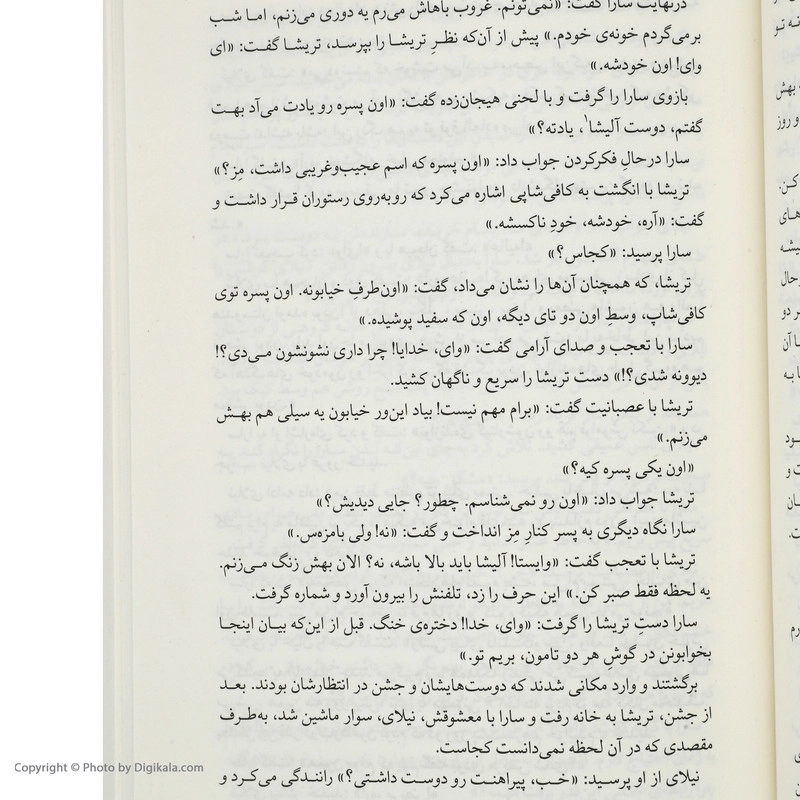 درنهایت سارا گفت: «نمی‌تونم. غروب باهاش می‌رم یه دوری می‌زنم، اما شب
برمی‌گردم خونه‌ی خودم.» پیش از آن‌که نظرِ تریشا را بپرسد، تریشا گفت: «ای
وای! اون خودشه.»
بازوی سارا را گرفت و با لحنی هیجان‌زده گفت: «اون پسره رو یادت می‌آد بهت
گفتم، دوست آلیشا۱، یادته؟»
سارا درحالِ فکرکردن جواب داد: «اون پسره که اسم عجیب‌وغریبی داشت، مِز؟»
تریشا با انگشت به کافی‌شاپی اشاره می‌کرد که روبه‌روی رستوران قرار داشت و
گفت: «آره، خودشه، خودِ ناکسشه.»
سارا پرسید: «کجاس؟»
تریشا، که همچنان آن‌ها را نشان می‌داد، گفت: «اون‌طرفِ خیابونه. اون پسره توی
کافی‌شاپ، وسطِ اون دو تای دیگه، اون که سفید پوشیده.»
سارا با تعجب و صدای آرامی گفت: «وای، خدایا! چرا داری نشونشون می‌دی؟!
دیوونه شدی؟!» دست تریشا را سریع و ناگهان کشید.
تریشا با عصبانیت گفت: «برام مهم نیست! بیاد این‌ور خیابون یه سیلی هم بهش
می‌زنم.»
«اون یکی پسره کیه؟»
تریشا جواب داد: «اون رو نمی‌شناسم. چطور؟ جایی دیدیش؟»
سارا نگاه دیگری به پسر کنارِ مِز انداخت و گفت: «نه! ولی بامزه‌س.»
تریشا با تعجب گفت: «وایستا! آلیشا باید بالا باشه، نه؟ الان بهش زنگ می‌زنم.
یه لحظه فقط صبر کن.» این حرف را زد، تلفنش را بیرون آورد و شماره گرفت.
سارا دستِ تریشا را گرفت: «وای، خدا! دختره‌ی خنگ. قبل از این‌که بیان اینجا
بخوابونن در گوشِ هر دو تامون، بریم تو.»
برگشتند و وارد مکانی شدند که دوست‌هایشان و جشن در انتظارشان بودند. بعد
از جشن، تریشا به خانه رفت و سارا با معشوقش، نیلای، سوار ماشین شد، به‌طرف
مقصدی که در آن لحظه نمی‌دانست کجاست.
نیلای از او پرسید: «خب، پیراهنت رو دوست داشتی؟» رانندگی می‌کرد و
Copyright © Photo by Digikala.com